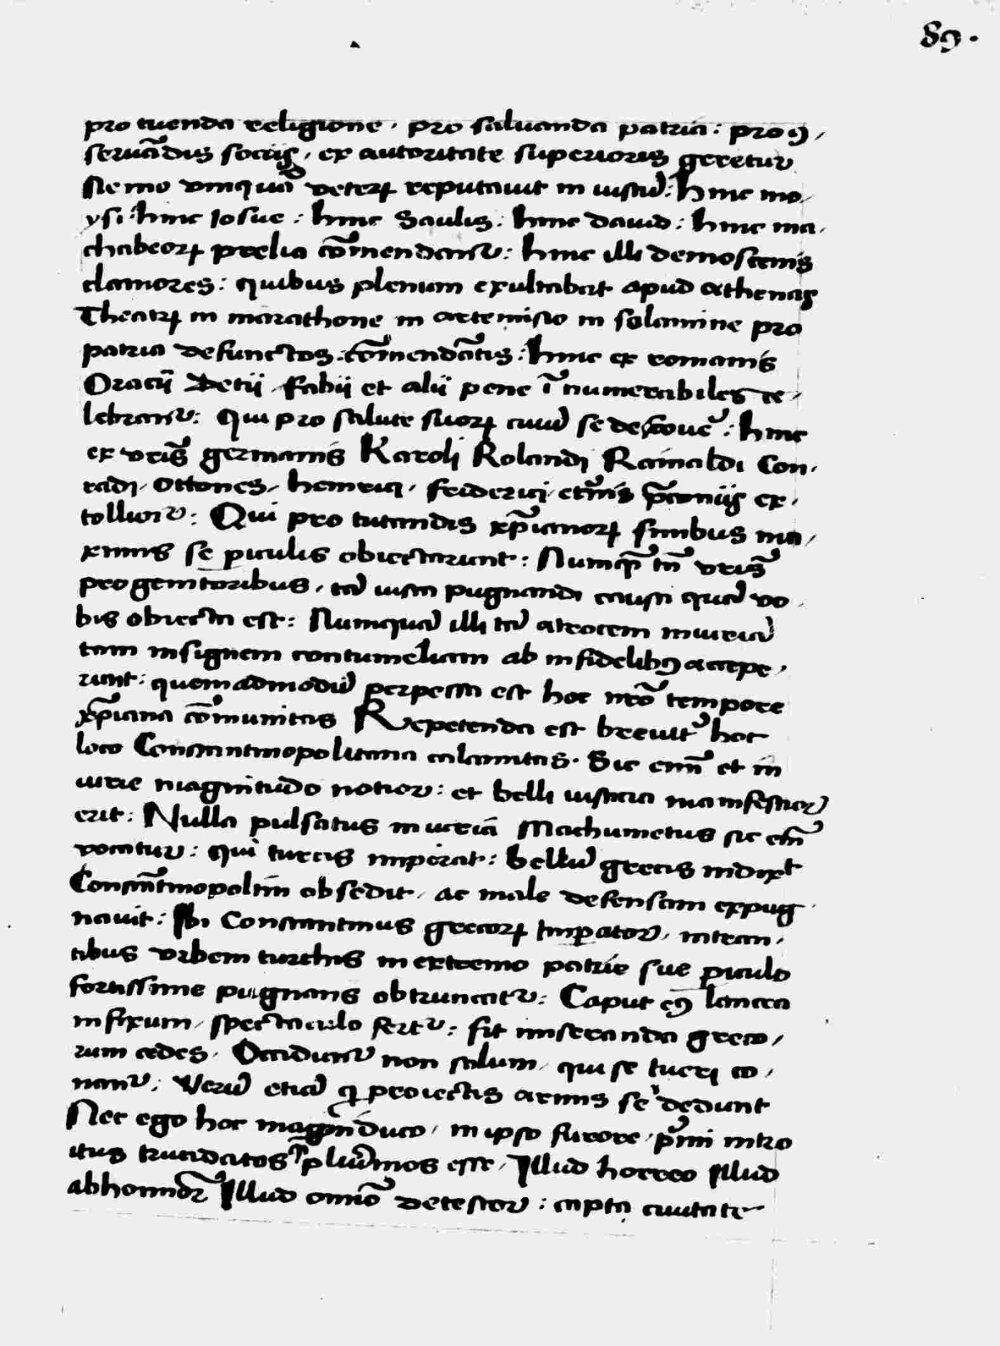 89.
pro tuenda religione, pro saluanda patria: pro ꝯ,
seruādis sociis, ex autoritate superioris geretur
Nemo vmquā veterꝝ reputauit iniustū: hinc mo,
ysi: hinc Iosue: hinc Saulis: hinc dauid: hinc ma,
chabeorꝝ prelia cōmendantᷣ: hinc illi demostenis
clamores: quibus plenum exultabat apud athenas
Theatrꝝ in marathone in artemisio in salamine pro
patria defunctos: cōmendātis: hinc ex romanis
Oracii Detii Fabii et alii pene īnumerabiles ce,
lebrantᷣ: Qui pro salute suorꝝ ciuiū se deuouerᷣ: hinc
ex vris̄ germanis Karoli Rolandi Rainaldi Con,
radi, Ottones, henrici, friderici, et̄nis p̄coniis ex,
tolluntᷣ: Qui pro tutandis xp̄ianorꝝ finibus ma,
ximis se ꝑiculis obiectarunt: Numqͣ tn̄ vris̄
progenitoribus, tā iusta pugnandi causa quā vo,
bis obiecta est: Numquā illi tā atrocem iniuriā
tam insignem contumeliam ab infidelibꝯ accepe,
runt: quemadmodū perpessa est hoc nrō tempore
xp̄iana cōmunitas Repetenda est breuitᷣ hoc
loco Constantinopolitana calamitas. Sic enī et in
iurie magnitudo notior: et belli iusticia manifestior
erit: Nulla pulsatus iniuriā Machumetus sic em̄
vocatur: qui turcis imperat: bellū grecis indixit
Constātinopolim obsedit, ac male defensam expug,
nauit: Ibi Constantinus grecorꝝ Imꝑator, intran,
tibus vrbem turchis in extremo patrie sue ꝑiculo
fortissime pugnans obtruncatᷣ: Caput eꝯ lancea
infixum, spectaculo fertᷣ: fit miseranda greco,
rum cedes, Occiduntᷣ non solum, qui se tueri co,
nantᷣ, Verū etiā q̄ proiectis armis sē dedunt
Nec ego hoc magnī duco, in ipso furore, p̄mi intro
itus trucidatos q̄plurīmos esse, Illud horreo Illud
abhominor Illud omīo detestor: capta ciuitate